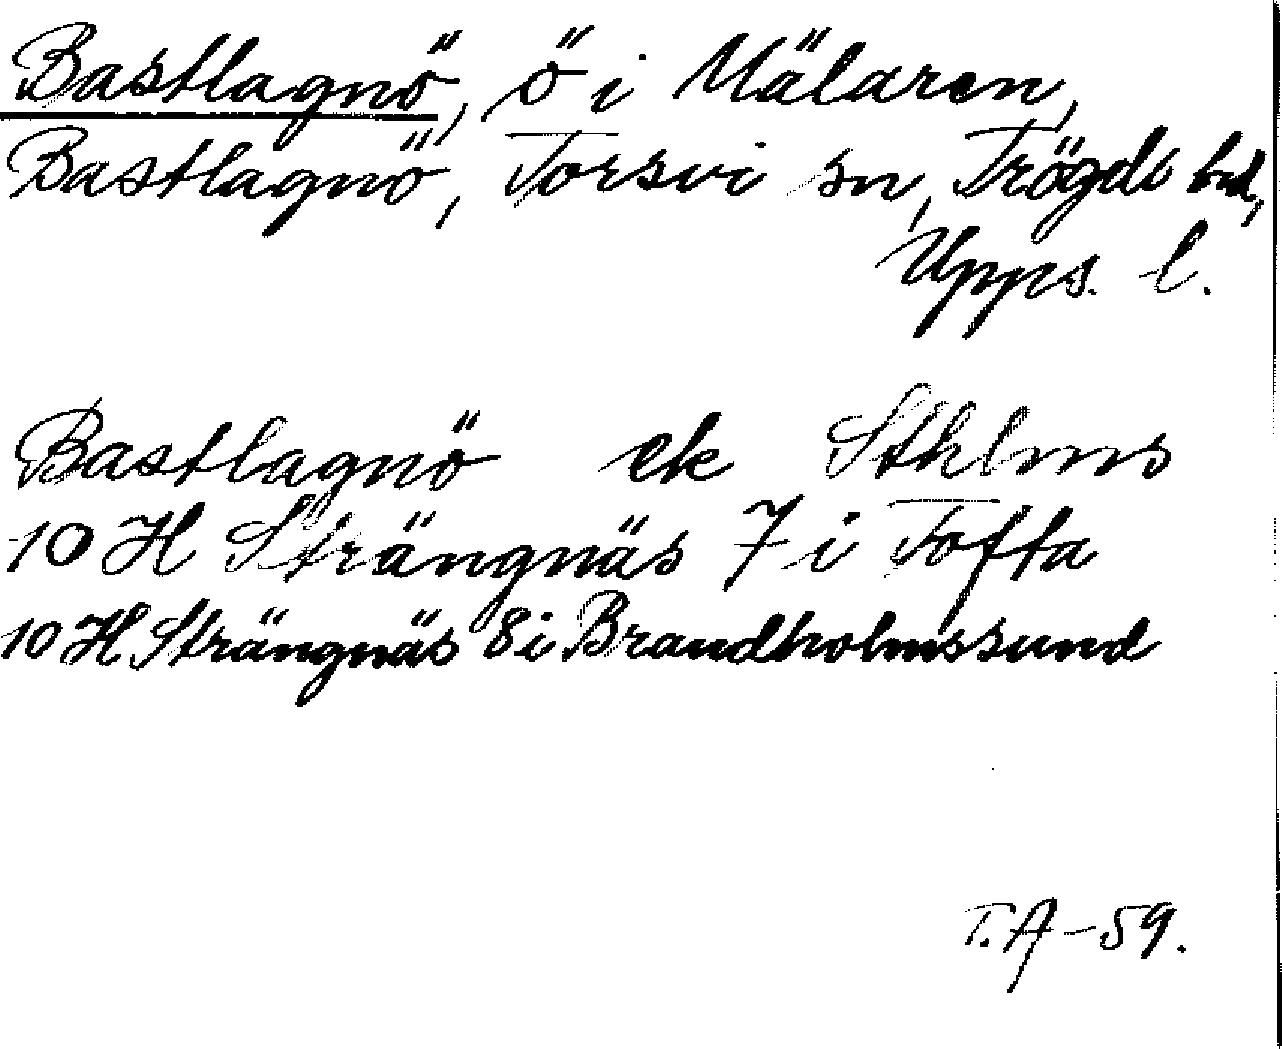 Bastlagnö, ö i Mälaren,
Bastlagnö, Torsvi sn, Trögds hd,
Upps. l.
Bastlagnö ek Sthlms
10 H Strängnäs 7 i Tofta
10 H Strängnäs 8 i Brandholmssund
T.A-59.